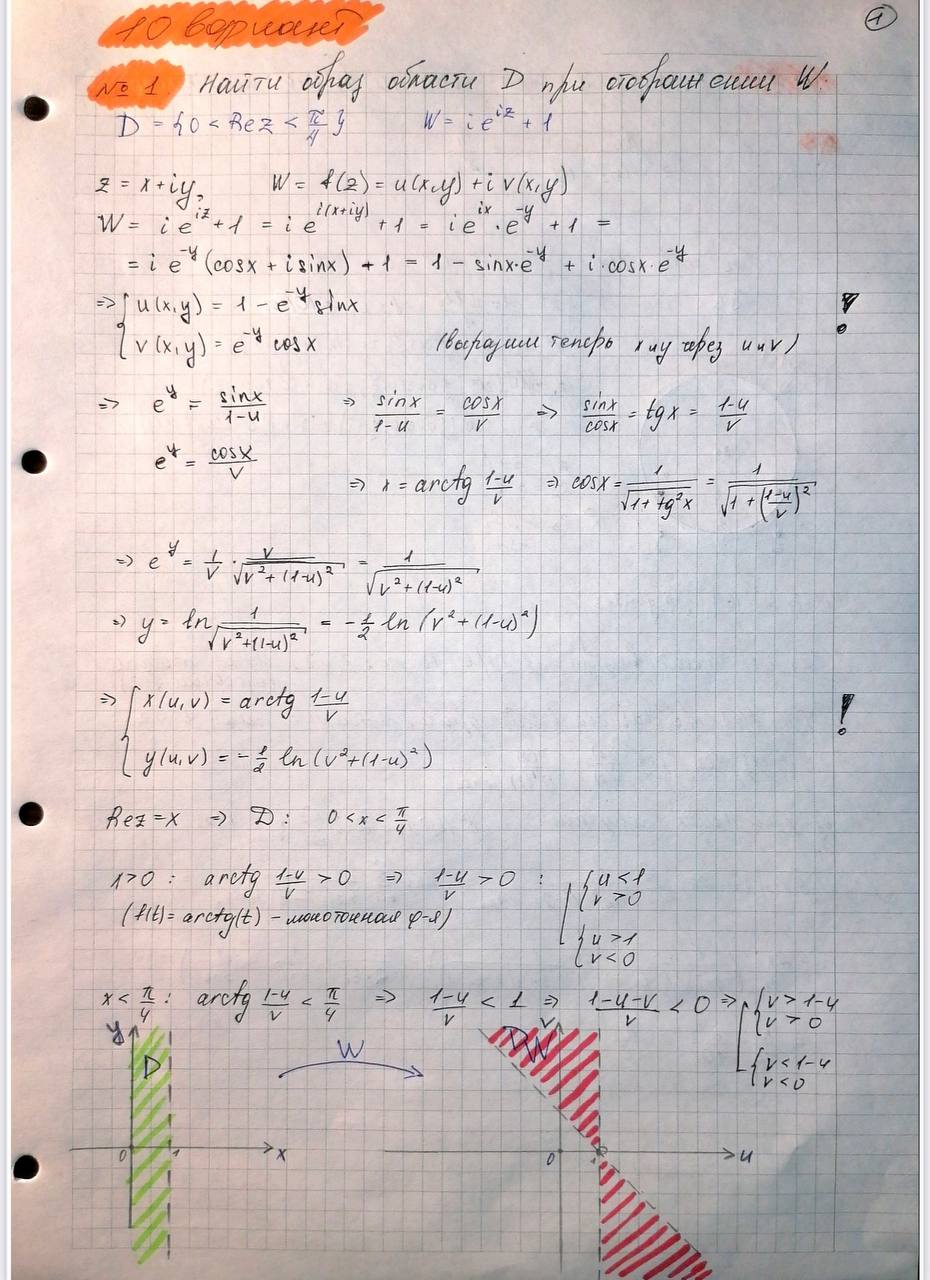 1
10 вариант
№ 1. Найти образ области D при отображении W.
D = {0 < Rez < π/4}    W = i e^{iz} + 1
z = x+iy,    W = f(z) = u(x,y) + i v(x,y)
W = i e^{iz} + 1 = i e^{i(x+iy)} + 1 = i e^{ix} · e^{-y} + 1 =
= i e^{-y} (cosx + i sinx) + 1 = 1 - sinx·e^{-y} + i·cosx·e^{-y}
⇒ { u(x,y) = 1 - e^{-y} sinx    !
{ v(x,y) = e^{-y} cosx    (выразим теперь x и y через u и v)
⇒ e^y = sinx/(1-u)    ⇒ sinx/(1-u) = cosx/v ⇒ sinx/cosx = tgx = (1-u)/v
e^y = cosx/v
⇒ x = arctg (1-u)/v ⇒ cosx = 1/√(1+tg²x) = 1/√(1+((1-u)/v)²)
⇒ e^y = 1/v · v/√(v²+(1-u)²) = 1/√(v²+(1-u)²)
⇒ y = ln 1/√(v²+(1-u)²) = -1/2 ln(v²+(1-u)²)
⇒ { x(u,v) = arctg (1-u)/v    !
{ y(u,v) = -1/2 ln(v²+(1-u)²)
Rez = x ⇒ D: 0 < x < π/4
x>0: arctg (1-u)/v > 0 ⇒ (1-u)/v > 0 : [ { u<1
v>0
(f(t) = arctg(t) - монотонная ф-я)
{ u>1
v<0
x < π/4: arctg (1-u)/v < π/4 ⇒ (1-u)/v < 1 ⇒ (1-u-v)/v < 0 ⇒ [ { v > 1-u
v > 0
{ v < 1-u
v < 0
y
D
W
v
DW
0
1
x
0
1
u